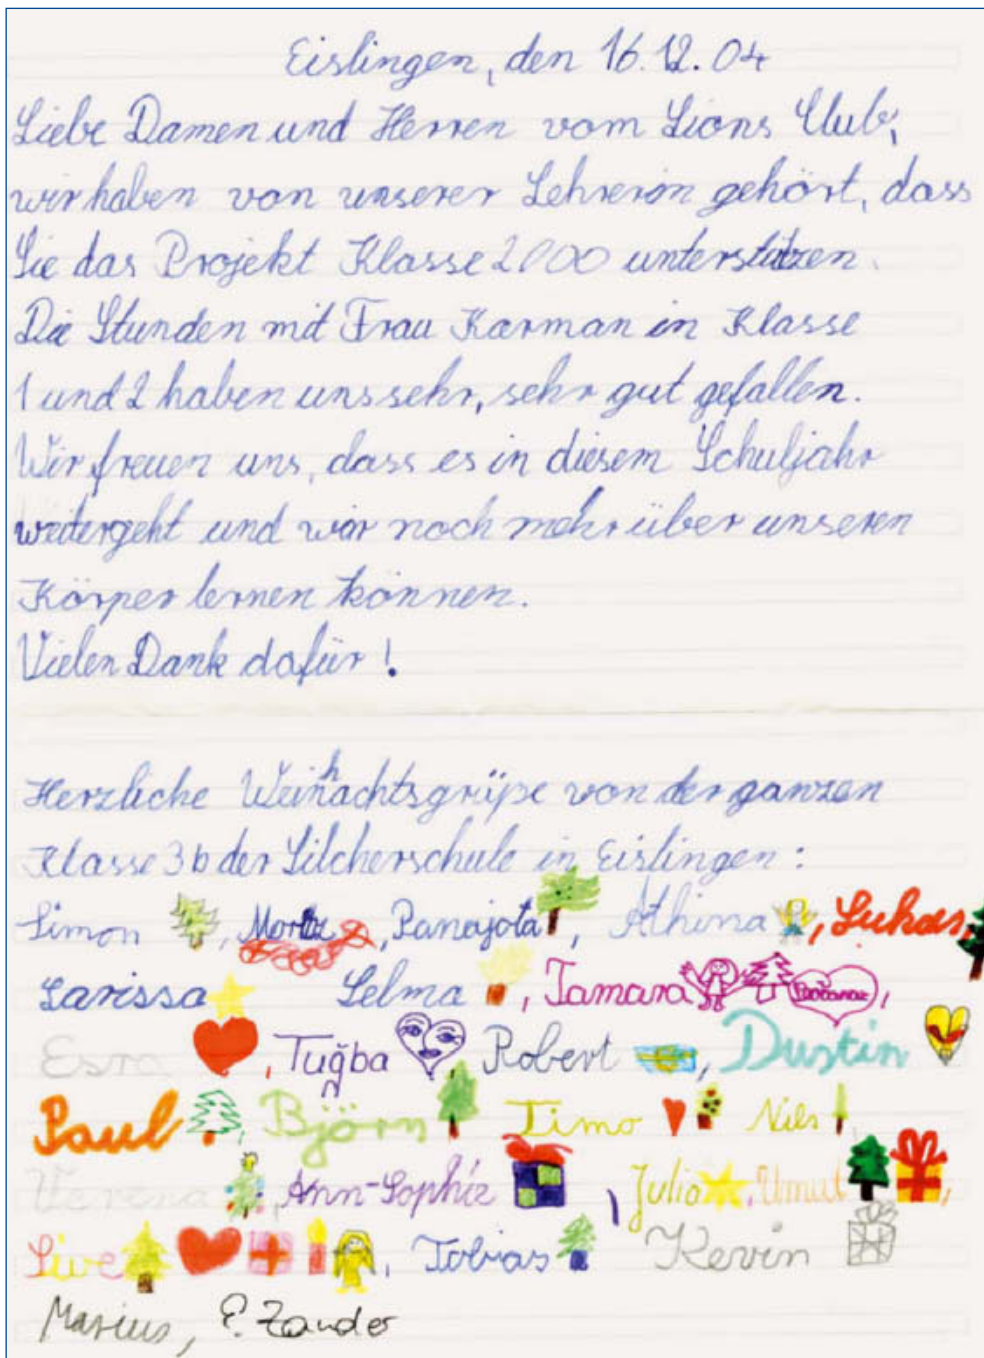 Eislingen, den 16.12.04
Liebe Damen und Herren vom Lions Club,
wir haben von unserer Lehrerin gehört, dass
Sie das Projekt Klasse 2000 unterstützen.
Die Stunden mit Frau Karman in Klasse
1 und 2 haben uns sehr, sehr gut gefallen.
Wir freuen uns, dass es in diesem Schuljahr
weitergeht und wir noch mehr über unseren
Körper lernen können.
Vielen Dank dafür!
Herzliche Weihnachtsgrüße von der ganzen
Klasse 3b der Silcherschule in Eislingen:
Simon, Moritz, Panajota, Athina, Lukas,
Larissa Selma, Tamara,
Esra, Tuğba, Robert, Dustin
Paul, Björn Timo Nils
Verena, Ann-Sophie, Julio, Umut,
Live, Tobias Kevin
Marius, P. Zander